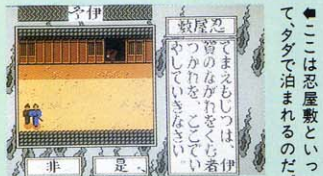 ⬅ここは忍屋敷といっ
て、タダで泊まれるのだ。
敷屋忍
てまえもじつは、伊
賀のながれをくむ者
つかれを、ここでい
やしていきなさい
予伊
是
非